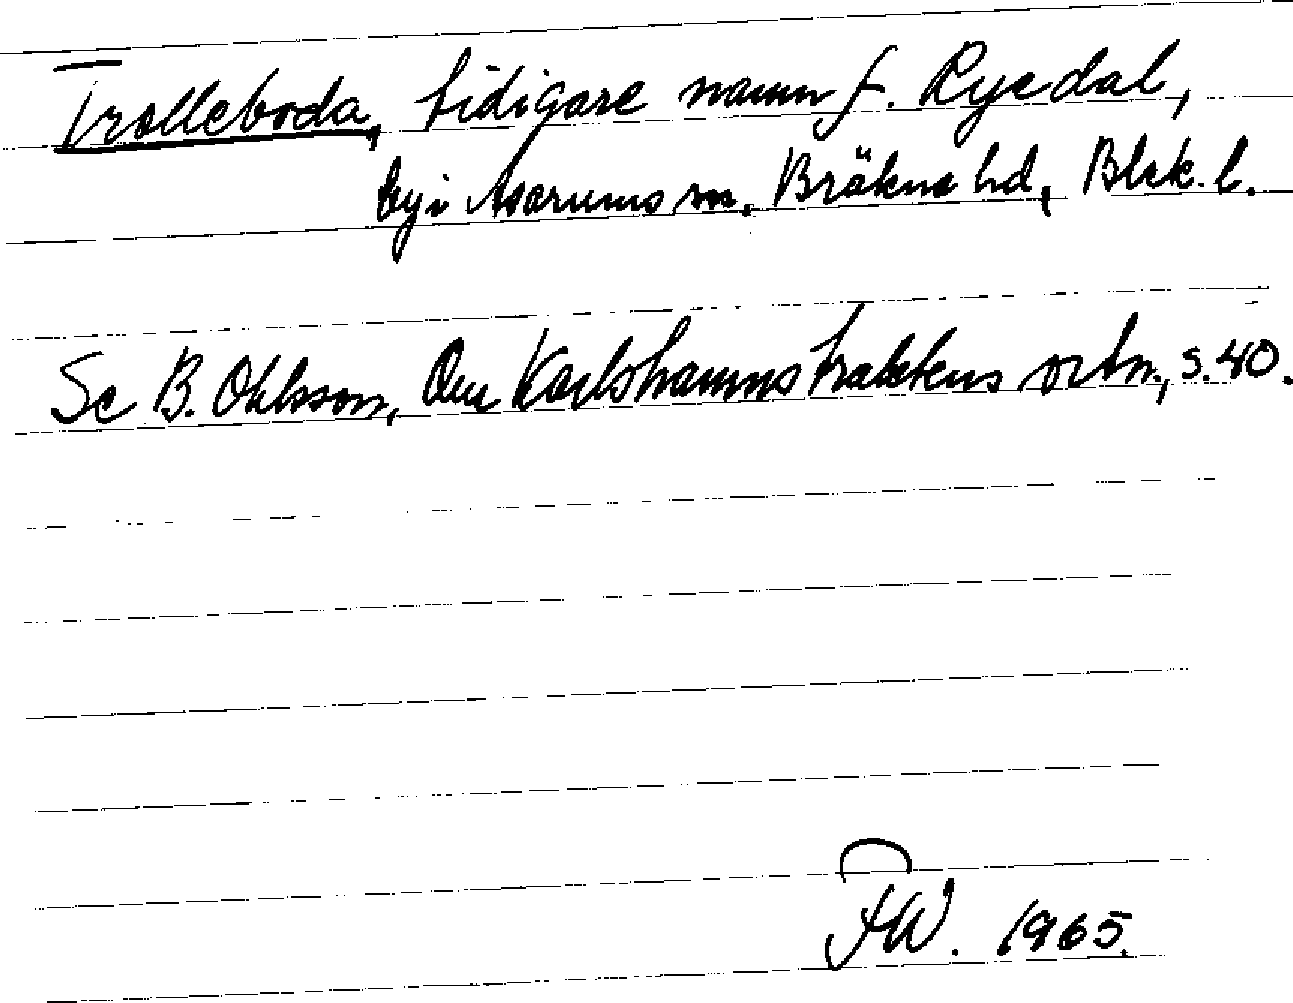 Trolleboda, tidigare namn f. Ryedal,
by i Asarums sn, Bräkne hd, Blek. l.
Se B. Ohlsson, Om Karlshamnstraktens ortn., s. 40.
FW. 1965.